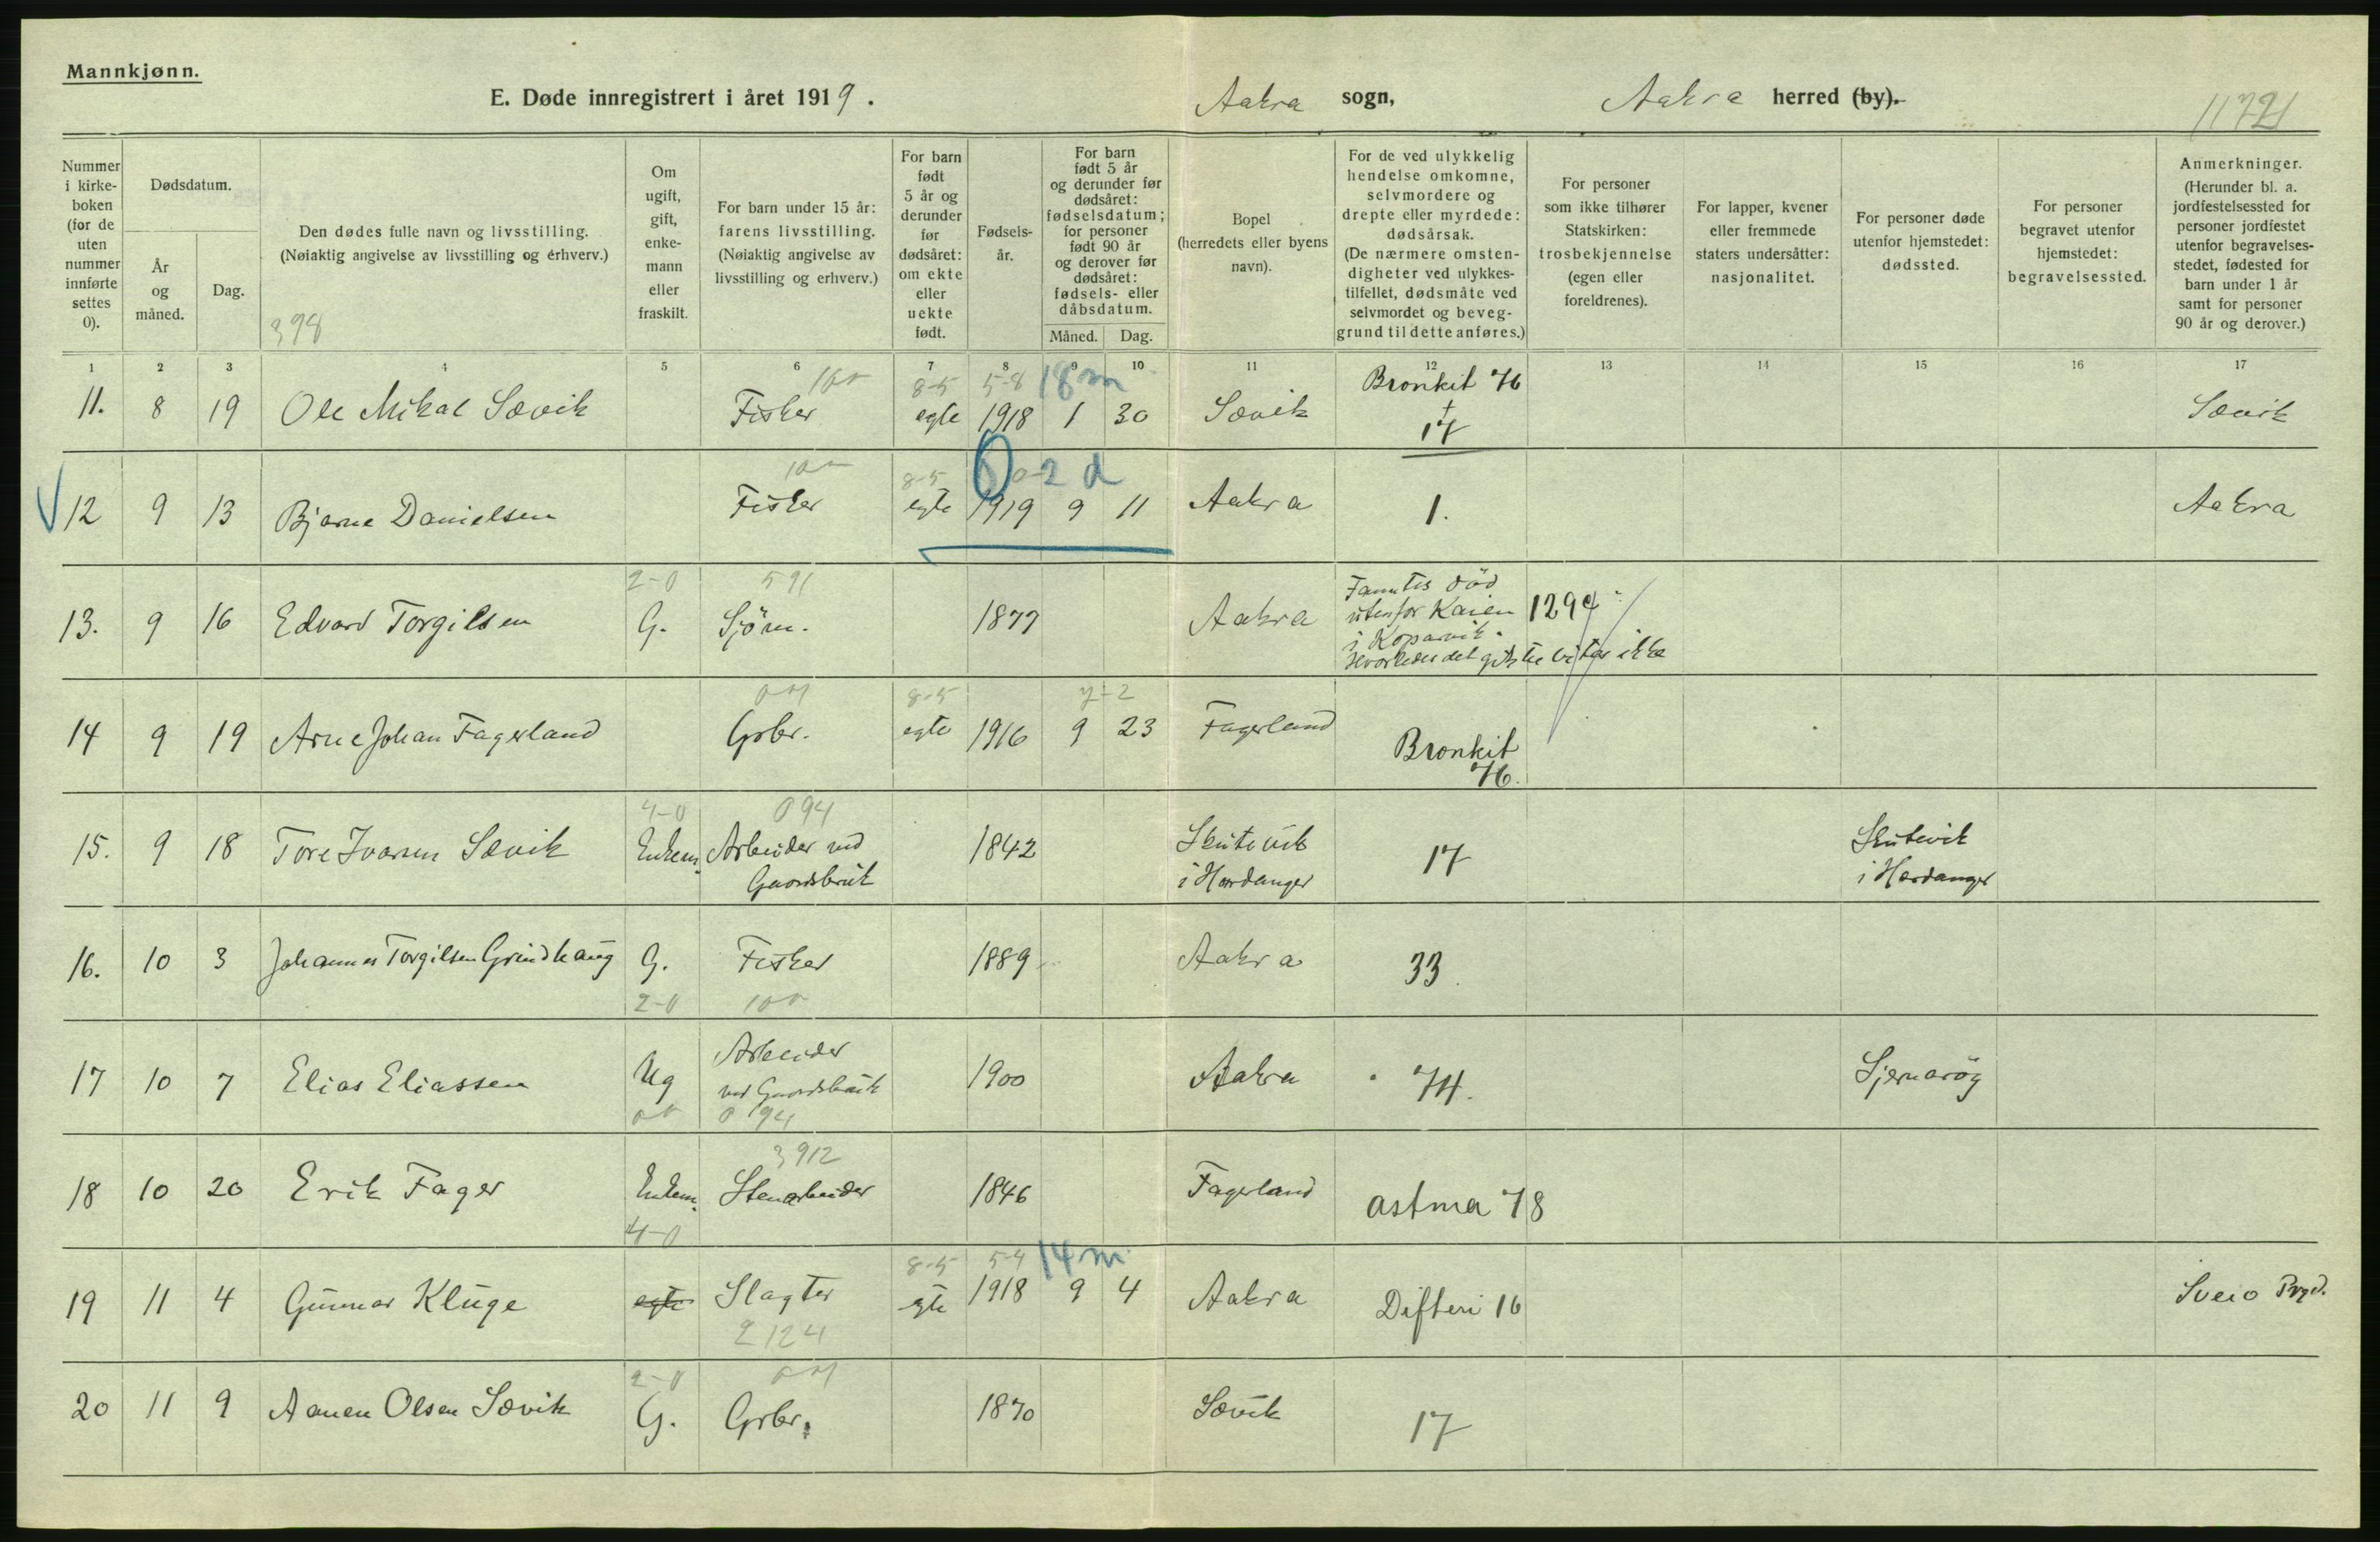 Mannkjønn.
E. Døde innregistrert i året 1919. Aakra sogn, Aakra herred (by).
11721
Nummer i kirke-boken (for de uten nummer innførte settes 0).
Dødsdatum.
År og måned.
Dag.
Den dødes fulle navn og livsstilling.
(Nøiaktig angivelse av livsstilling og erhverv.)
398
Om ugift, gift, enke-mann eller fraskilt.
For barn under 15 år: farens livsstilling.
(Nøiaktig angivelse av livsstilling og erhverv.)
For barn født 5 år og derunder før dødsåret: om ekte eller uekte født.
Fødsels-år.
For barn født 5 år og derunder før dødsåret: fødselsdatum; for personer født 90 år og derover før dødsåret: fødsels- eller dåbsdatum.
Måned. Dag.
Bopel (herredets eller byens navn).
For de ved ulykkelig hendelse omkomne, selvmordere og drepte eller myrdede: dødsårsak.
(De nærmere omsten-digheter ved ulykkes-tilfellet, dødsmåte ved selvmordet og beveg-grund til dette anføres.)
For personer som ikke tilhører Statskirken: trosbekjennelse (egen eller foreldrenes).
For lapper, kvener eller fremmede staters undersåtter: nasjonalitet.
For personer døde utenfor hjemstedet: dødssted.
For personer begravet utenfor hjemstedet: begravelsessted.
Anmerkninger.
(Herunder bl. a. jordfestelsessted for personer jordfestet utenfor begravelses-stedet, fødested for barn under 1 år samt for personer 90 år og derover.)
1 2 3 4 5 6 7 8 9 10 11 12 13 14 15 16 17
100 8-5 5-8 18 m Bronkit 76
11. 8 19 Ole Mikal Sævik Fisker egte 1918 1 30 Sævik + 17 Sævik
100 8-5 0-2 d
12 9 13 Bjarne Danielsen Fisker egte 1919 9 11 Aakra 1. Aakra
2-0 591
13. 9 16 Edvard Torgilsen G. Sjöm. 1877 Aakra
Fantes död
utenfor Kaien 1294
i Kopervik.
Hvorledes det gik til vites ikke
8-5 7-2
14 9 19 Arne Johan Fagerland Grbr. egte 1916 9 23 Fagerland Bronkit
76.
4-0 094
15. 9 18 Tore Ivarsen Sævik Enkem. Arbeider ved 1842 Skutevik 17 Skutevik
Gaardsbruk i Hardanger i Hardanger
16. 10 3 Johannes Torgilsen Grindhaug G. Fisker 1889 Aakra 33.
2-0 100
17 10 7 Elias Eliassen Ug Arbeider 1900 Aakra 74. Sjernaröy
ved Gaardsbruk
094
3912
18 10 20 Erik Fager Enkem. Stenarbeider 1846 Fagerland astma 78
4-0
8-5 5-4 14 m
19 11 4 Gunnar Kluge egte Slagter egte 1918 9 4 Aakra Difteri 16 Sveio
2124
2-0
20 11 9 Aanen Olsen Sævik G. Grbr. 1870 Sævik 17